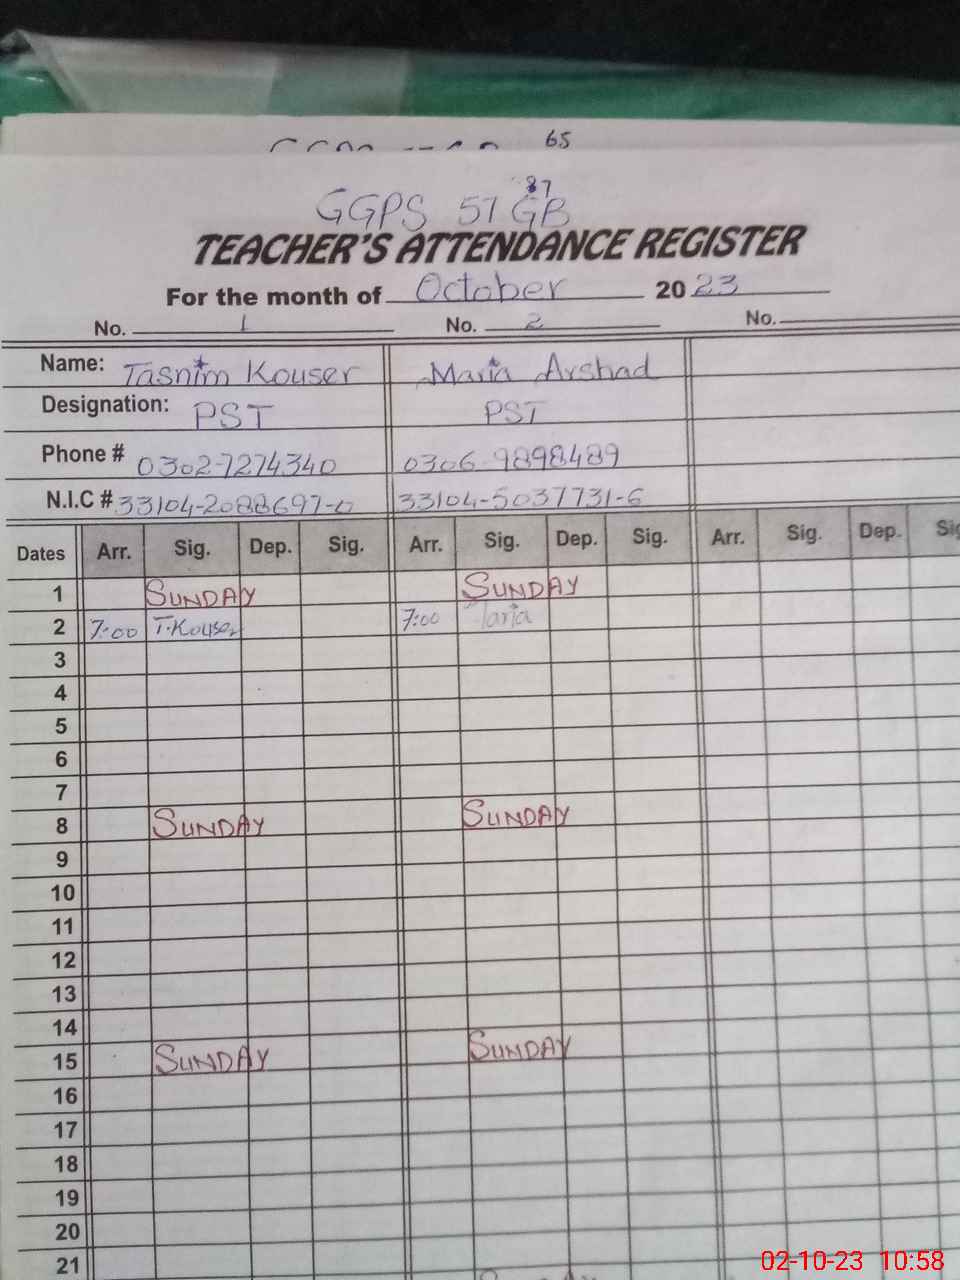 65
87
GGPS 57 GB
TEACHER'S ATTENDANCE REGISTER
For the month of October 2023
No. 1 No. 2 No.
Name: Tasnim Kouser Maria Arshad
Designation: PST PST
Phone # 0302-7274340 0306-9898489
N.I.C # 33104-2088697-0 33104-5037731-6
Dates Arr. Sig. Dep. Sig. Arr. Sig. Dep. Sig. Arr. Sig. Dep. Sig
1 SUNDAY SUNDAY
2 7:00 T.Kouser 7:00 Maria
3
4
5
6
7
8 SUNDAY SUNDAY
9
10
11
12
13
14
15 SUNDAY SUNDAY
16
17
18
19
20
21
02-10-23 10:58